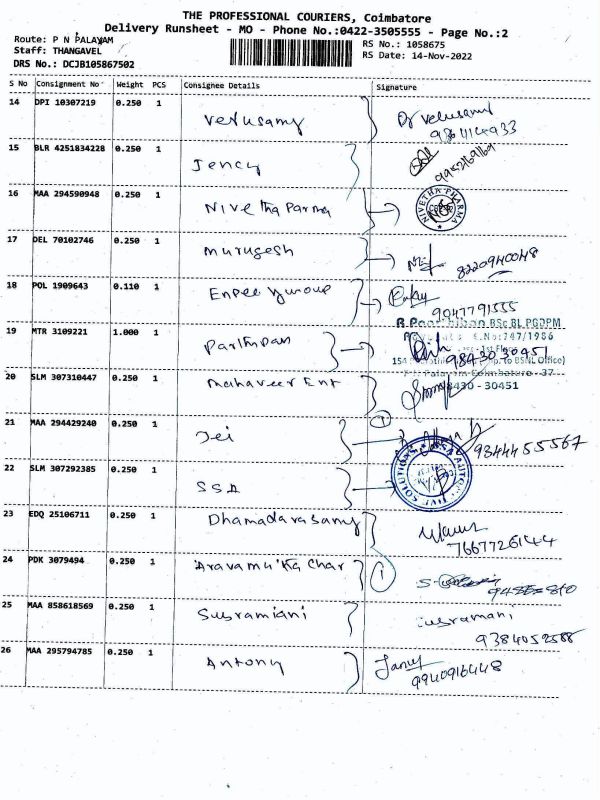 THE PROFESSIONAL COURIERS, Coimbatore
Delivery Runsheet - MO - Phone No.:0422-3505555 - Page No.:2
Route: P N PALAYAM
RS No.: 1058675
Staff: THANGAVEL
RS Date: 14-Nov-2022
DRS No.: DCJB105867502
S No Consignment No Weight PCS Consignee Details Signature
14 DPI 10307219 0.250 1 Velusamy Velusamy
15 BLR 4251834228 0.250 1 Jency 9952169169
16 MAA 294590948 0.250 1 Nivetha Parma NIVETHA PHARMA
17 DEL 70102746 0.250 1 Murugesh 8220940048
18 POL 1909643 0.110 1 Enpee Group 9047791555
R.Parthiban BSc BL PGDPM
19 MTR 3109221 1.000 1 Parthipan 98430 30451
20 SLM 307310447 0.250 1 Mahaveer Ent
21 MAA 294429240 0.250 1 Jei 9344455567
22 SLM 307292385 0.250 1 SSA
23 EDQ 25106711 0.250 1 Dhamadarasamy 7667726144
24 PDK 3079494 0.250 1 Aravamu'Ka Char
25 MAA 858618569 0.250 1 Subramiani Subramani
9384052588
26 MAA 295794785 0.250 1 Antony
9940916448